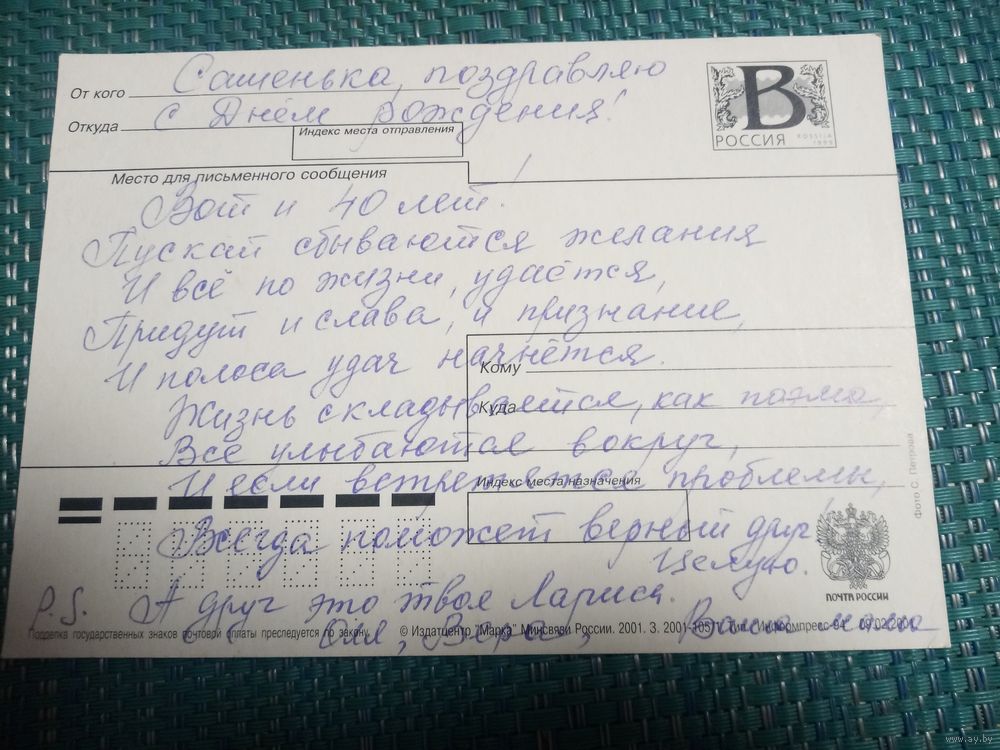 Сашенька, поздравляю
От кого
с Днём рождения!
Откуда
Индекс места отправления
В
РОССИЯ
ROSSIJA
1995
Место для письменного сообщения
Вот и 40 лет!
Пускай сбываются желания
И всё по жизни удаётся,
Придут и слава, и признание,
И полоса удач начнётся.
Кому
Жизнь складывается, как поэма,
Куда
Все улыбаются вокруг,
И если встретятся проблемы,
Индекс места назначения
Всегда поможет верный друг!
Целую.
P.S. А друг это твоя Лариса.
Оля, Вера, Ваша мама
Подделка государственных знаков почтовой оплаты преследуется по закону
© Издатцентр "Марка" Минсвязи России. 2001. З. 2001-105/1.
ПОЧТА РОССИИ
Фото С. Петрова
www.ay.by